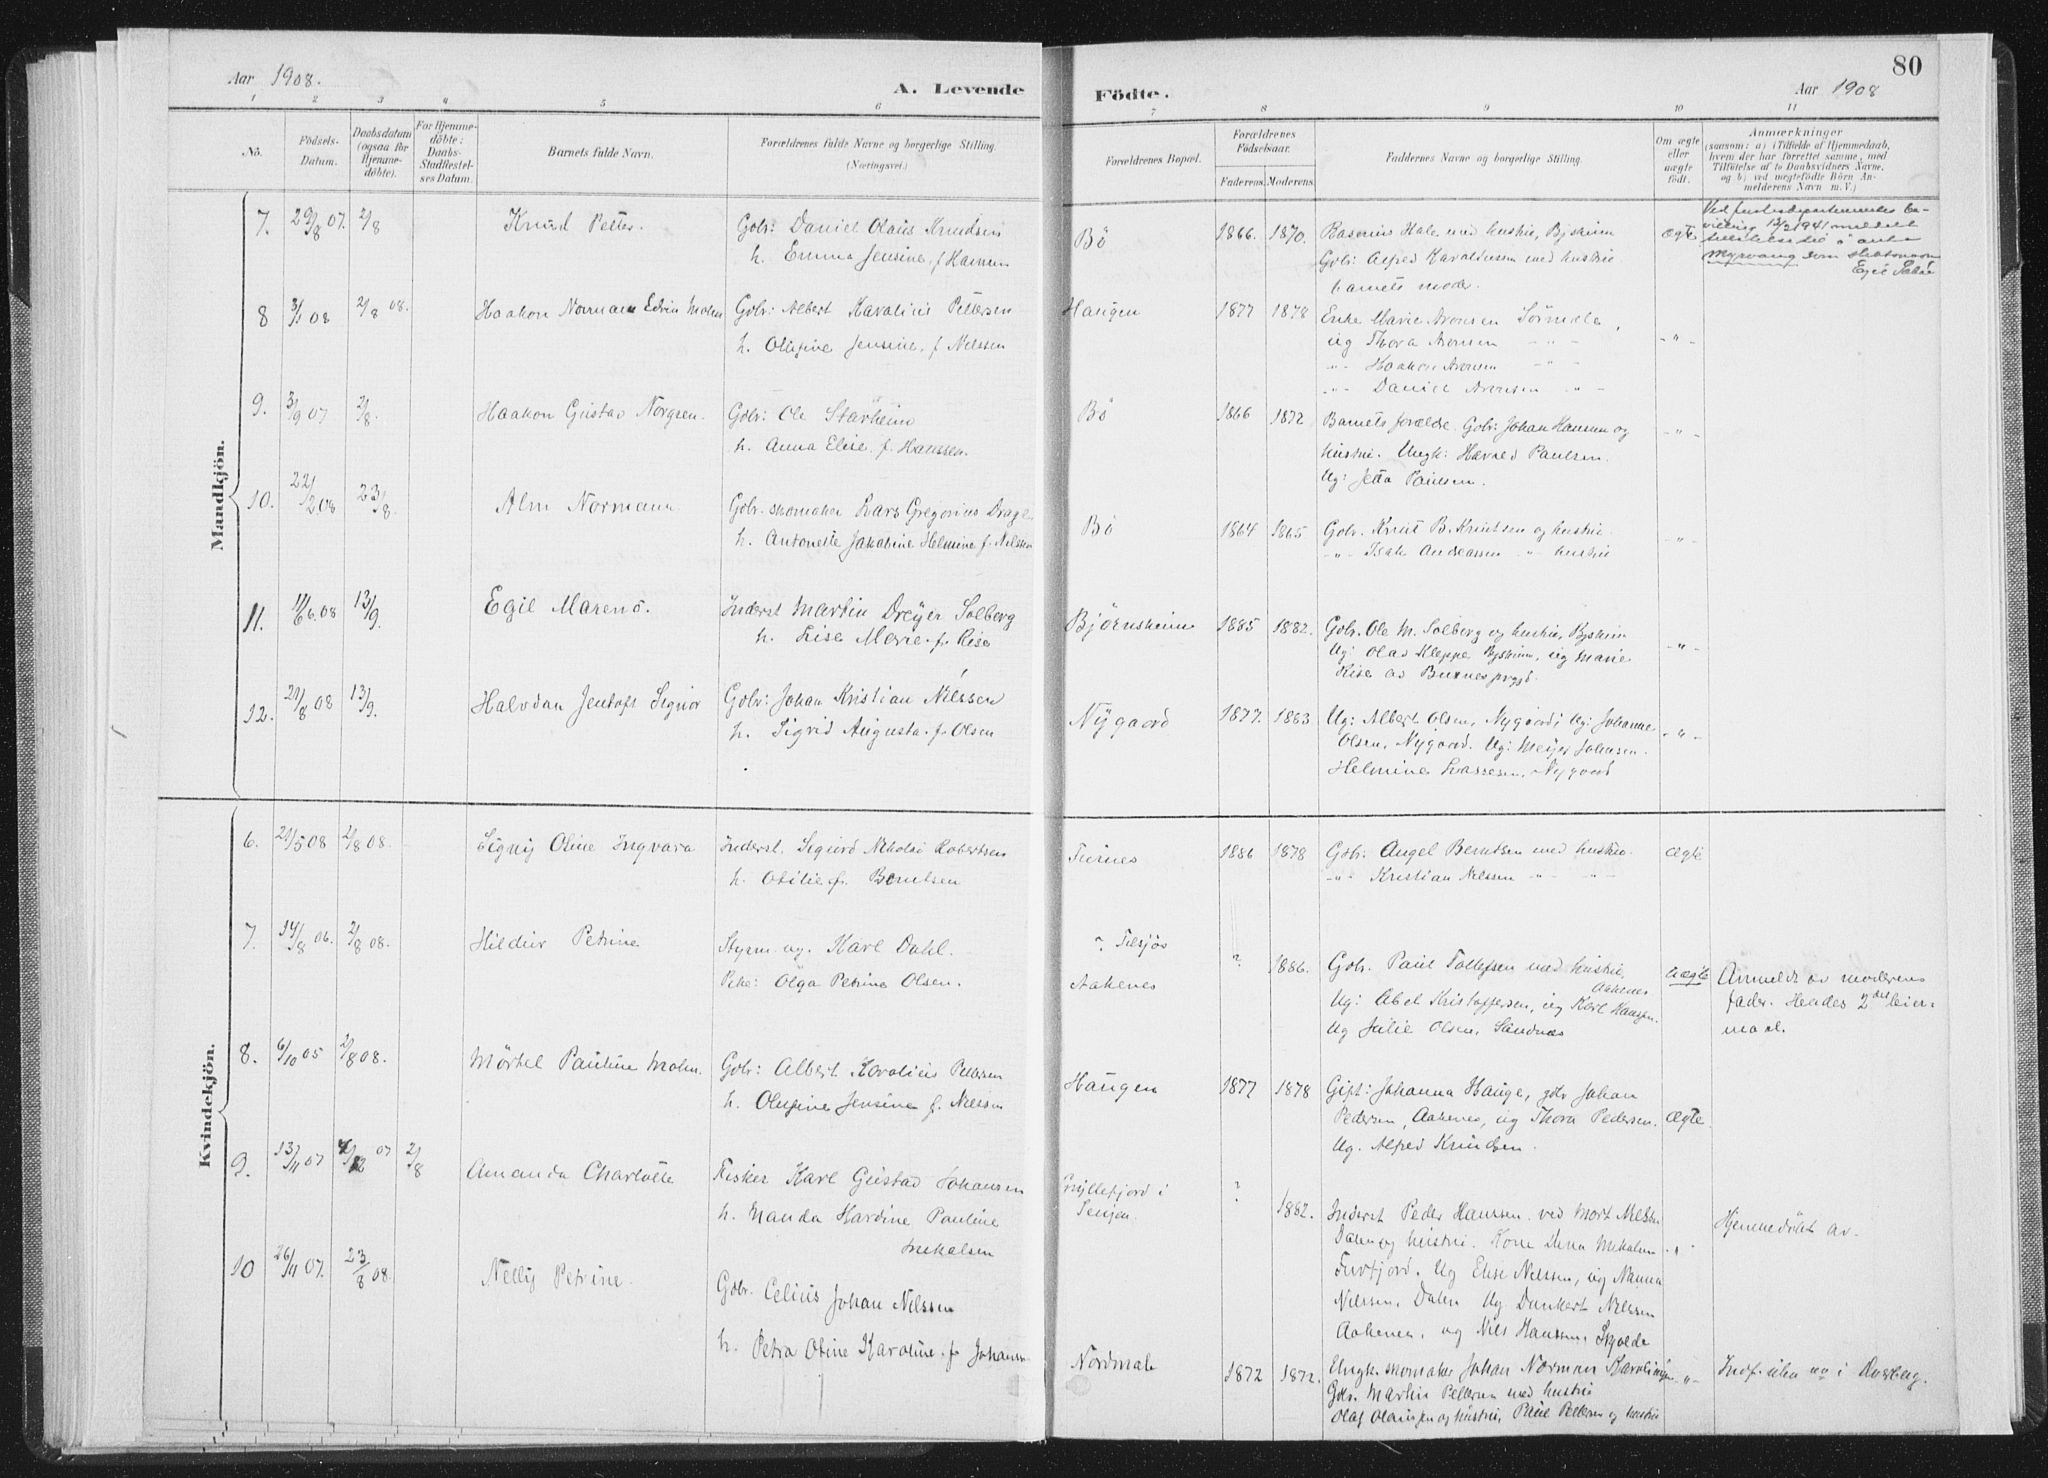 Aar 1908.
A. Levende
Födte.
Aar 1908
80
1 2 3 4 5 6 7 8 9 10 11
No.
Födsels-
Datum.
Daabsdatum
(ogsaa for
Hjemme-
döbte).
For Hjemme-
döbte:
Daabs-
Stadfæstel-
ses Datum.
Barnets fulde Navn.
Forældrenes fulde Navne og borgerlige Stilling.
(Næringsvei.)
Forældrenes Bopæl.
Forældrenes
Födselsaar.
Faderens. Moderens.
Faddernes Navne og borgerlige Stilling.
Om ægte
eller
uægte
födt.
Anmærkninger
(saasom: a) i Tilfælde af Hjemmedaab,
hvem der har forrettet samme, med
Tilföielse af to Daabsvidners Navne,
og b) ved uægtefödte Börn An-
melderens Navn m. V.)
Mandkjön.
7. 29/8 07. 2/8 Knud Petter. Gbr: Daniel Olaus Knudsen
h. Emma Jensine, f. Hansen
Bö 1866. 1870. Rasmus Hale med hustru, Bjskinn
Gbr: Alfred Karoliussen med hustru
barnets moder.
Ægte
Ved Justisdepartementets be-
villing 13/2 1941 meddelt
tillatelse til å anta
Myrvang som slektsnavn
8 3/1 08 2/8 08. Haakon Norman Edvin Malm Gbr: Albert Karolius Pettersen
h. Olufine Jensine, f. Nilssen
Haugen 1877 1878 Enke Marie Aronsen Sörmele,
ug Thora Aronsen - " -
" Haakon Aronsen - " -
" Daniel Aronsen - " -
- " -
9. 3/9 07 2/8. Haakon Gustav Norgren. Gbr: Ole Starheim
h. Anna Elise, f. Hanssen.
Bö 1866 1872 Barnets forælde. Gbr: Johan Hansen og
hustru. Ungk: Harald Paulsen.
Ug: Jetta Paulsen.
- " -
10. 22/2 08 23/8. Alm Normann Gbr. skomaker Lars Gregorius Drage
h. Antonette Jakobine Helmine f. Nilssen
Bö 1864 1865 Gbr. Knut B. Knutsen og hustru.
- " - Isak Andreassen - " - hustru
- " -
11. 11/6 08 13/9. Egil Marenö. Inderst Martin Dreyer Solberg
h. Lise Marie f. Rise
Björnsheim 1885 1882. Gbr. Ole M. Solberg og hustru, Bjskinn
Ug: Olav Kleppe Bjskinn, ug Marie
Rise av Buknes prgjd.
- " -
12. 21/8 08 13/9. Halvdan Jentoft Signor Gbr: Johan Kristian Nilssen
h. Sigrid Augusta f. Olsen
Nygaard 1877. 1883 Ug: Albert Olsen, Nygaard; Ug: Johanne
Olsen, Nygaard. Ug: Meyer Johansen.
Helmine Lassesen, Nygaard
- " -
Kvindekjön.
6. 21/5 08 2/8 08. Signy Oline Ingvara Inderst. Sigurd Nikolai Robertsen
h. Otilie f. Berntsen
1886 1878 Gbr: Angel Berntsen med hustru.
- " - Kristian Nilssen - " - - " -
Ægte
7. 14/8 06. 2/8 08. Hildur Petrine Styrm. ug. Karl Dahl.
Pike: Olga Petrine Olsen.
?
Aakenes ? 1886. Gbr. Paul Tollefsen med hustru,
Aakenes
Ug: Abel Kristoffersen, ug Karl Hansen.
Ug Julie Olsen, Sandnes
Uægte
Anmeldt av moderens
fader. Hendes 2det leier-
maal.
8. 6/10 05 2/8 08. Mörtel Pauline Malm. Gbr: Albert Karolius Pettersen
h. Olufine Jensine f. Nilssen
Haugen 1877 1878 Gift: Johanna Hauge, gbr Johan
Pedersen, Aakenes, ug Thora Pedersen.
Ug. Alfred Knudsen.
Ægte.
9. 13/11 07 /12 07 2/8 Amanda Charlotte Fisker Karl Gustav Johansen
h. Nanda Hardine Pauline
Mikalsen
Gryllefjord i
Senjen.
? 1882. Inderst Peder Hanssen ved Mort Nilssen
Dalen og hustru. Kone Dina Mikalsen
Torfjord. Ug Elise Nilssen, ug Nanna
Nilssen, Dalen Ug Dankert Nilssen
Aakenes, og Nils Hanssen, Skjolde
"
Hjemmedöbt av.
10 26/11 07. 23/8 08. Nelly Petrine. Gbr. Celius Johan Nilssen
h. Petra Oline Karoline f. Johansen
Nordmele 1872 1872. Ungk. skomaker Johan Norman Karoliussen
Gbr. Martin Pettersen med hustru
Olaf Olaussen og hustru, Paul Pettersen og hustru
- " -